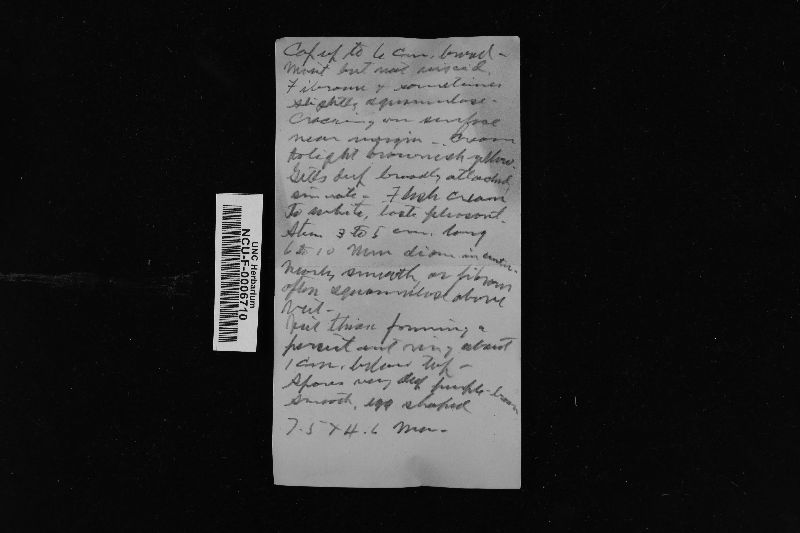 Cap up to 6 cm. broad -
moist but not viscid,
Fibrous & sometimes
slightly squamulose -
cracking on surface
near margin - cream
to light brownish yellow.
Gills deep broadly attached,
sinuate - Flesh cream
to white, taste pleasant -
Stem 3 to 5 cm. long
6 to 10 mm diam in center -
nearly smooth or fibrous
often squamulose above
veil -
Veil thick forming a
persistent ring about
1 cm. below top -
Spores very deep purple-brown
smooth, egg shaped
7.5 x 4.6 mm -
UNC Herbarium
NCU-F-0006710